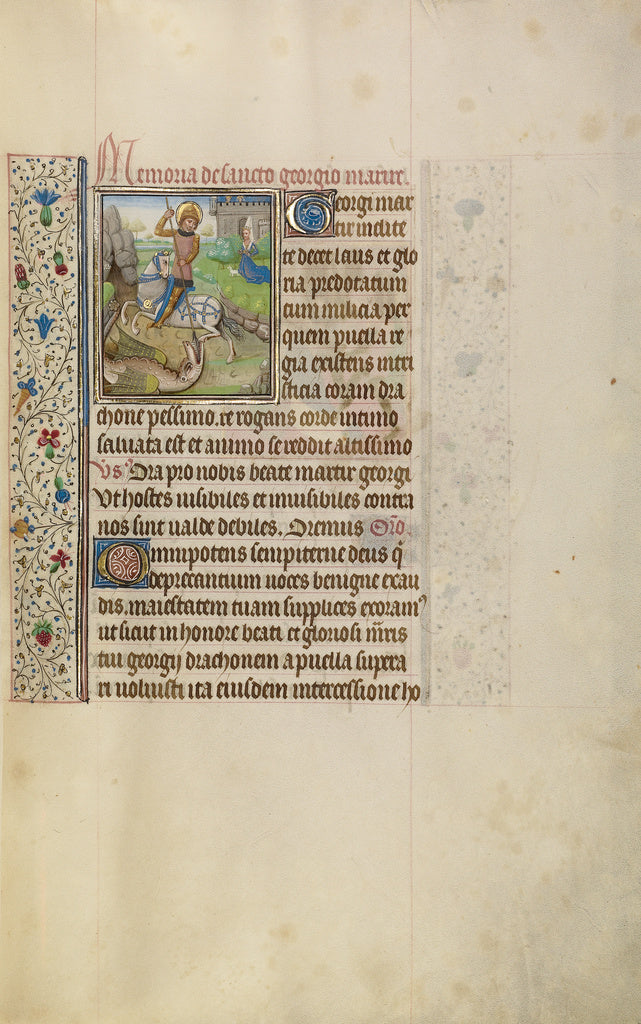 Memoria de sancto georgio martire.
Georgi mar
tir inclite
te decet laus et glo
ria predotatum
cum milicia per
quem puella re
gia existens in tri
sticia coram dra
chone pessimo. te rogans corde intimo
saluata est et animo se reddit altissimo
Vs. Ora pro nobis beate martir georgi
Vt hostes uisibiles et inuisibiles contra
nos sint ualde debiles. Oremus Oro.
Omnipotens sempiterne deus q̄
deprecantium uoces benigne exau
dis. maiestatem tuam supplices exoram᾽
ut sicut in honore beati et gloriosi m̄ris
tui georgij drachonem a puella supera
ri uoluisti ita eiusdem intercessione ho